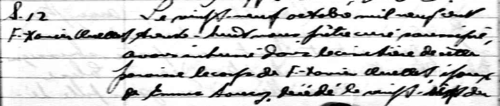 S. 12 Le vingt-neuf octobre mil neuf cent
F-Xavier Ouellet trente-huit nous prêtre curé soussigné,
avons inhumé dans le cimetière de cette
paroisse le corps de F-Xavier Ouellet, époux
de Emma Soucy, décédé le vingt-sept du